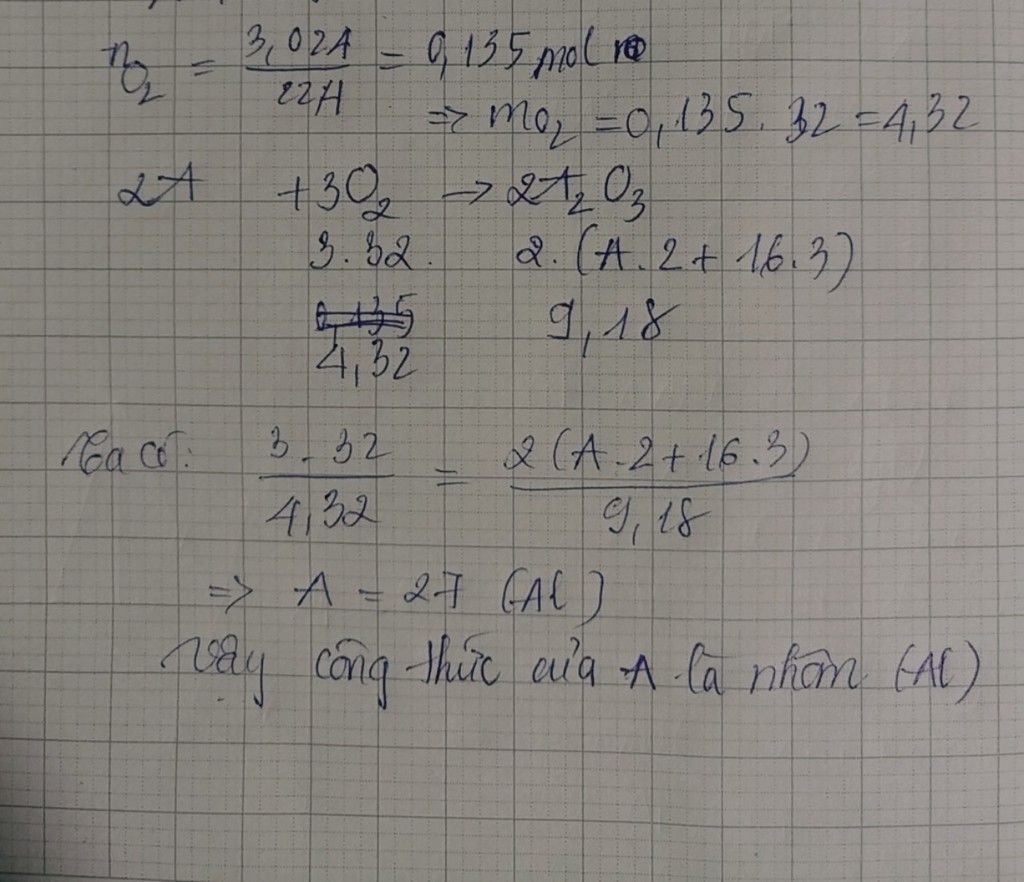 nO₂ = 3,024 / 22,4 = 0,135 mol
=> mO₂ = 0,135. 32 = 4,32
2A + 3O₂ → 2A₂O₃
3.32. 2.(A.2+ 16.3)
0,135 9,18
4,32
Ta có: 3.32 / 4,32 = 2(A.2+16.3) / 9,18
=> A = 27 (Al)
Vậy công thức của A là nhôm (Al)